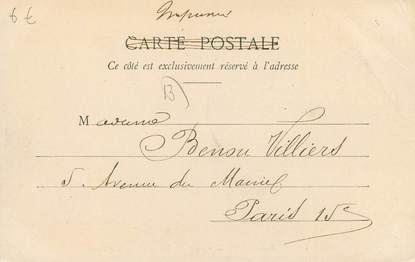 6 €
Imprimé
CARTE POSTALE
Ce côté est exclusivement réservé à l'adresse
B
Madame
Benon Villiers
5. Avenue du
Paris 15e